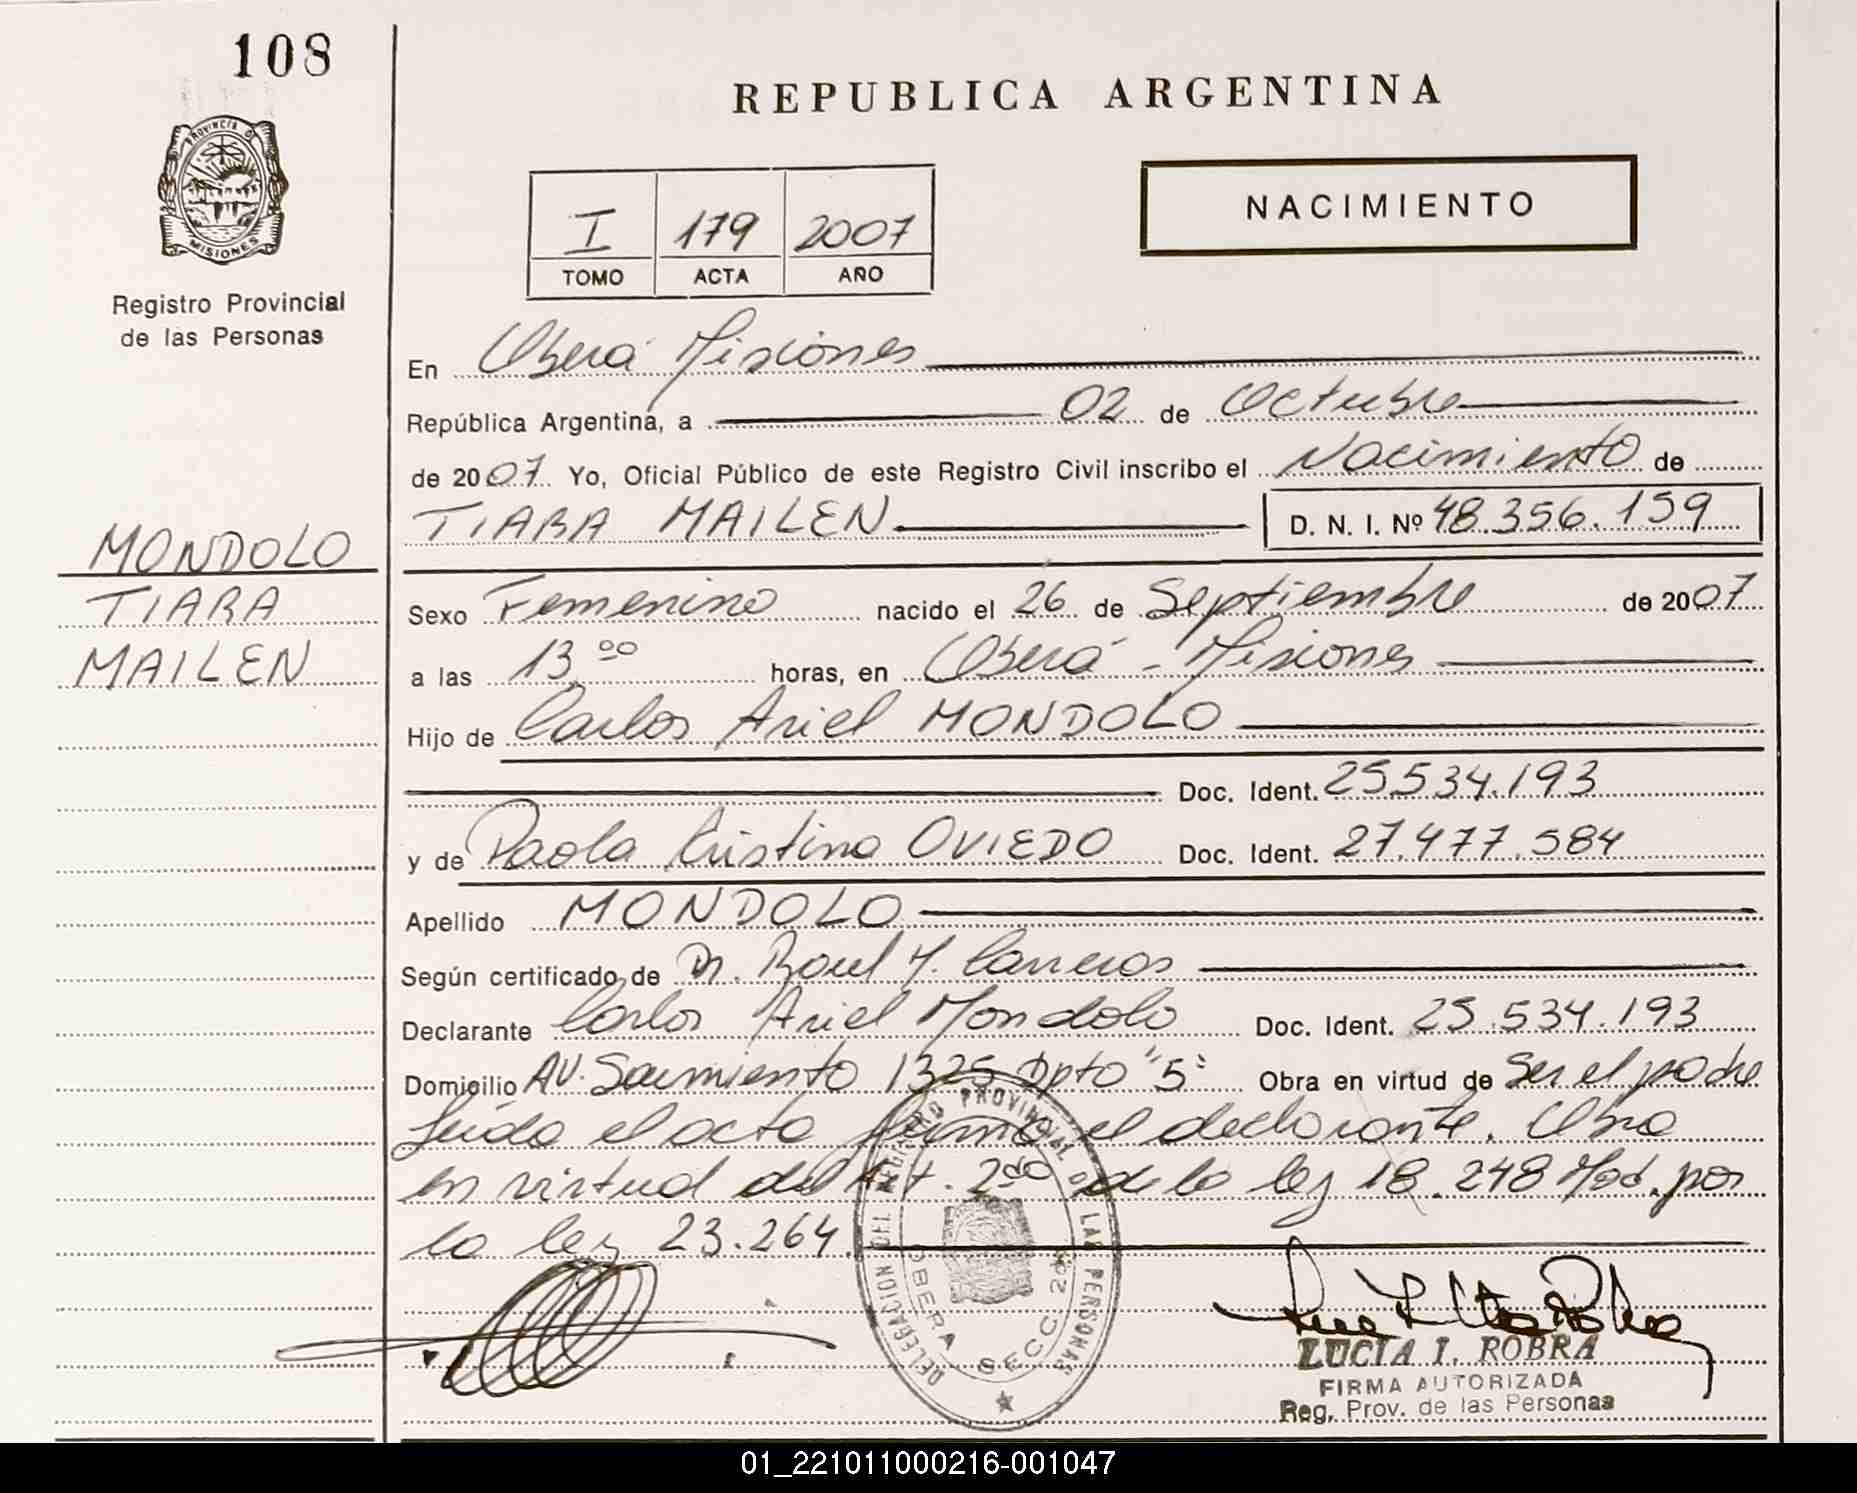 108
REPUBLICA ARGENTINA
PROVINCIA DE
MISIONES
Registro Provincial
de las Personas
NACIMIENTO
I 179 2007
TOMO ACTA AÑO
En Oberá Misiones
República Argentina, a 02 de Octubre
de 2007 Yo, Oficial Público de este Registro Civil inscribo el Nacimiento de
TIARA MAILEN D. N. I. Nº 48.356.159
MONDOLO
TIARA
MAILEN
Sexo Femenino nacido el 26 de Septiembre de 2007
a las 13,00 horas, en Oberá - Misiones
Hijo de Carlos Ariel MONDOLO
Doc. Ident. 25.534.193
y de Paola Cristina OVIEDO Doc. Ident. 27.477.584
Apellido MONDOLO
Según certificado de Dr. Raul Carreros
Declarante Carlos Ariel Mondolo Doc. Ident. 25.534.193
Domicilio AV. Sarmiento 1325 Dpto "5" Obra en virtud de Ser el padre
Leída el acta firma el declarante. Obra
en virtud del Art. 2do de la ley 18.248 Mod. por
la ley 23.264.
DELEGACION DEL REGISTRO PROVINCIAL DE LAS PERSONAS
OBERA SECC. 2da
LUCIA I. ROBRA
FIRMA AUTORIZADA
Reg. Prov. de las Personas
01_221011000216-001047